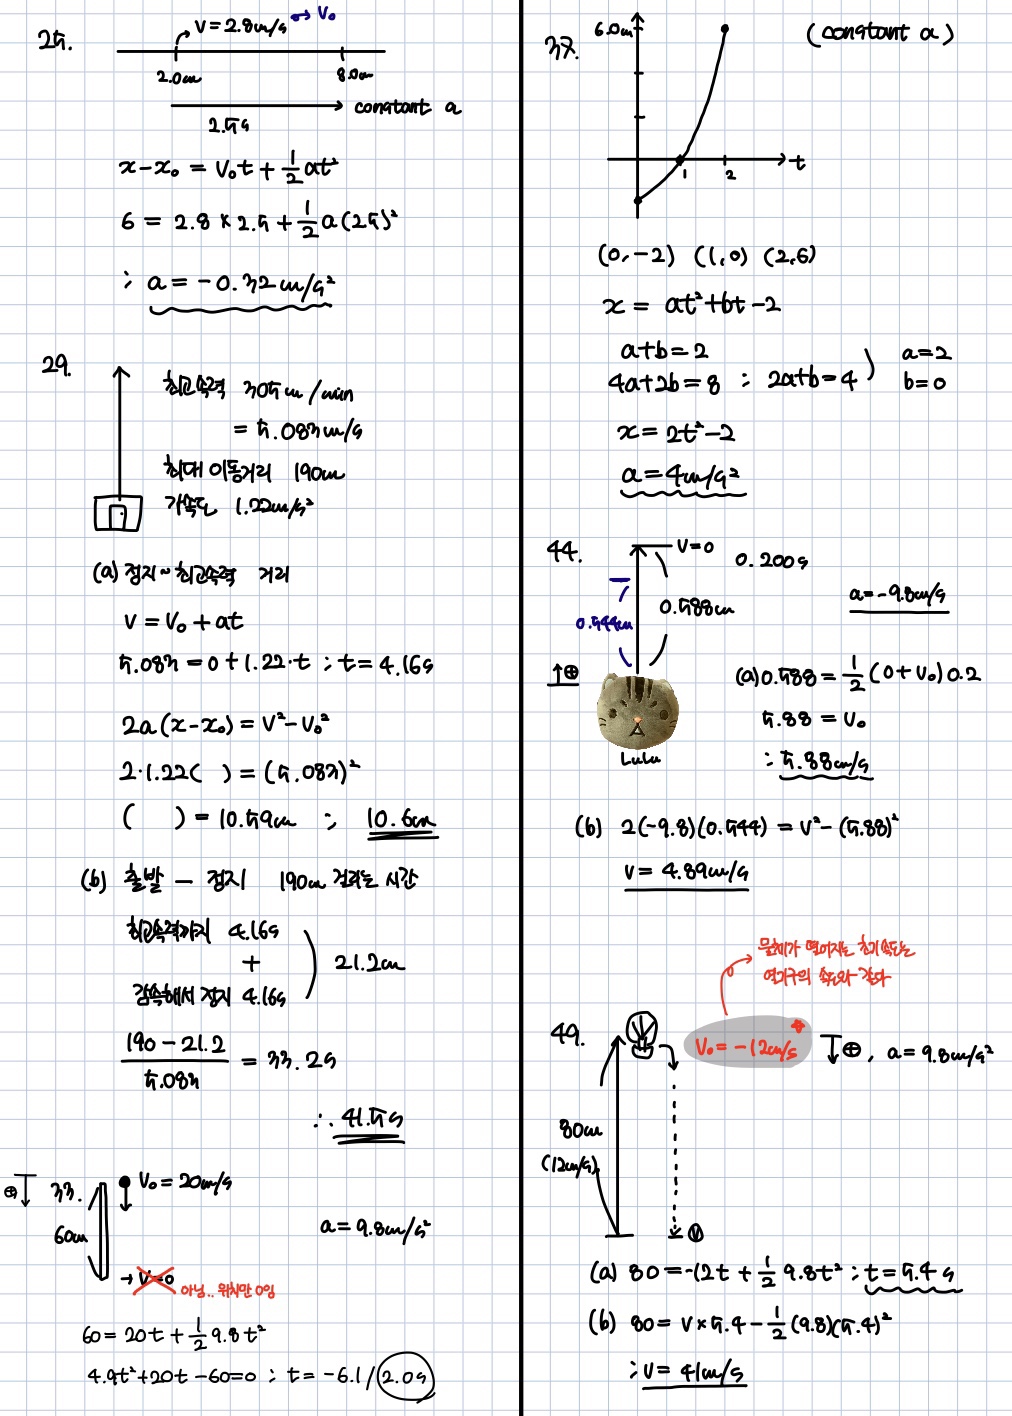 25.
v = 2.8m/s → v₀
2.0m
8.0m
constant a
2.5s
x-x₀ = v₀t + 1/2 at²
6 = 2.8 × 2.5 + 1/2 a(2.5)²
∴ a = -0.32 m/s²
29.
최고속력 305m/min
= 5.083m/s
최대 이동거리 190m
가속도 1.22m/s²
(a) 정지~최고속력 거리
v = v₀ + at
5.083 = 0 + 1.22·t ; t = 4.16s
2a(x-x₀) = v²-v₀²
2·1.22( ) = (5.083)²
( ) = 10.59m ; 10.6m
(b) 출발 — 정지 190m 걸리는 시간
최고속력까지 4.16s
+
21.2m
감속해서 정지 4.16s
190 - 21.2 / 5.083 = 33.2s
∴ 41.5s
⊕
33.
v₀ = 20m/s
60m
a = 9.8m/s²
→ v=0
아님.. 위치만 0임
60 = 20t + 1/2 9.8t²
4.9t²+20t-60=0 ; t = -6.1 / 2.0s
37.
6.0m
(constant a)
1
2
t
(0,-2) (1,0) (2,6)
x = at²+bt-2
a+b=2
4a+2b=8 ; 2a+b=4
a=2
b=0
x = 2t²-2
a = 4m/s²
44.
v=0
0.200s
0.588m
a=-9.8m/s
0.544m
↑⊕
Lulu
(a) 0.588 = 1/2 (0+v₀)0.2
5.88 = v₀
∴ 5.88m/s
(b) 2(-9.8)(0.544) = v²-(5.88)²
v = 4.89m/s
물체가 떨어지는 초기속도는
열기구의 속도와 같다
49.
v₀ = -12m/s
↓⊕, a = 9.8m/s²
80m
(12m/s)
v
(a) 80 = -12t + 1/2 9.8t² ; t = 5.4s
(b) 80 = v×5.4 - 1/2 (9.8)(5.4)²
∴ v = 41m/s